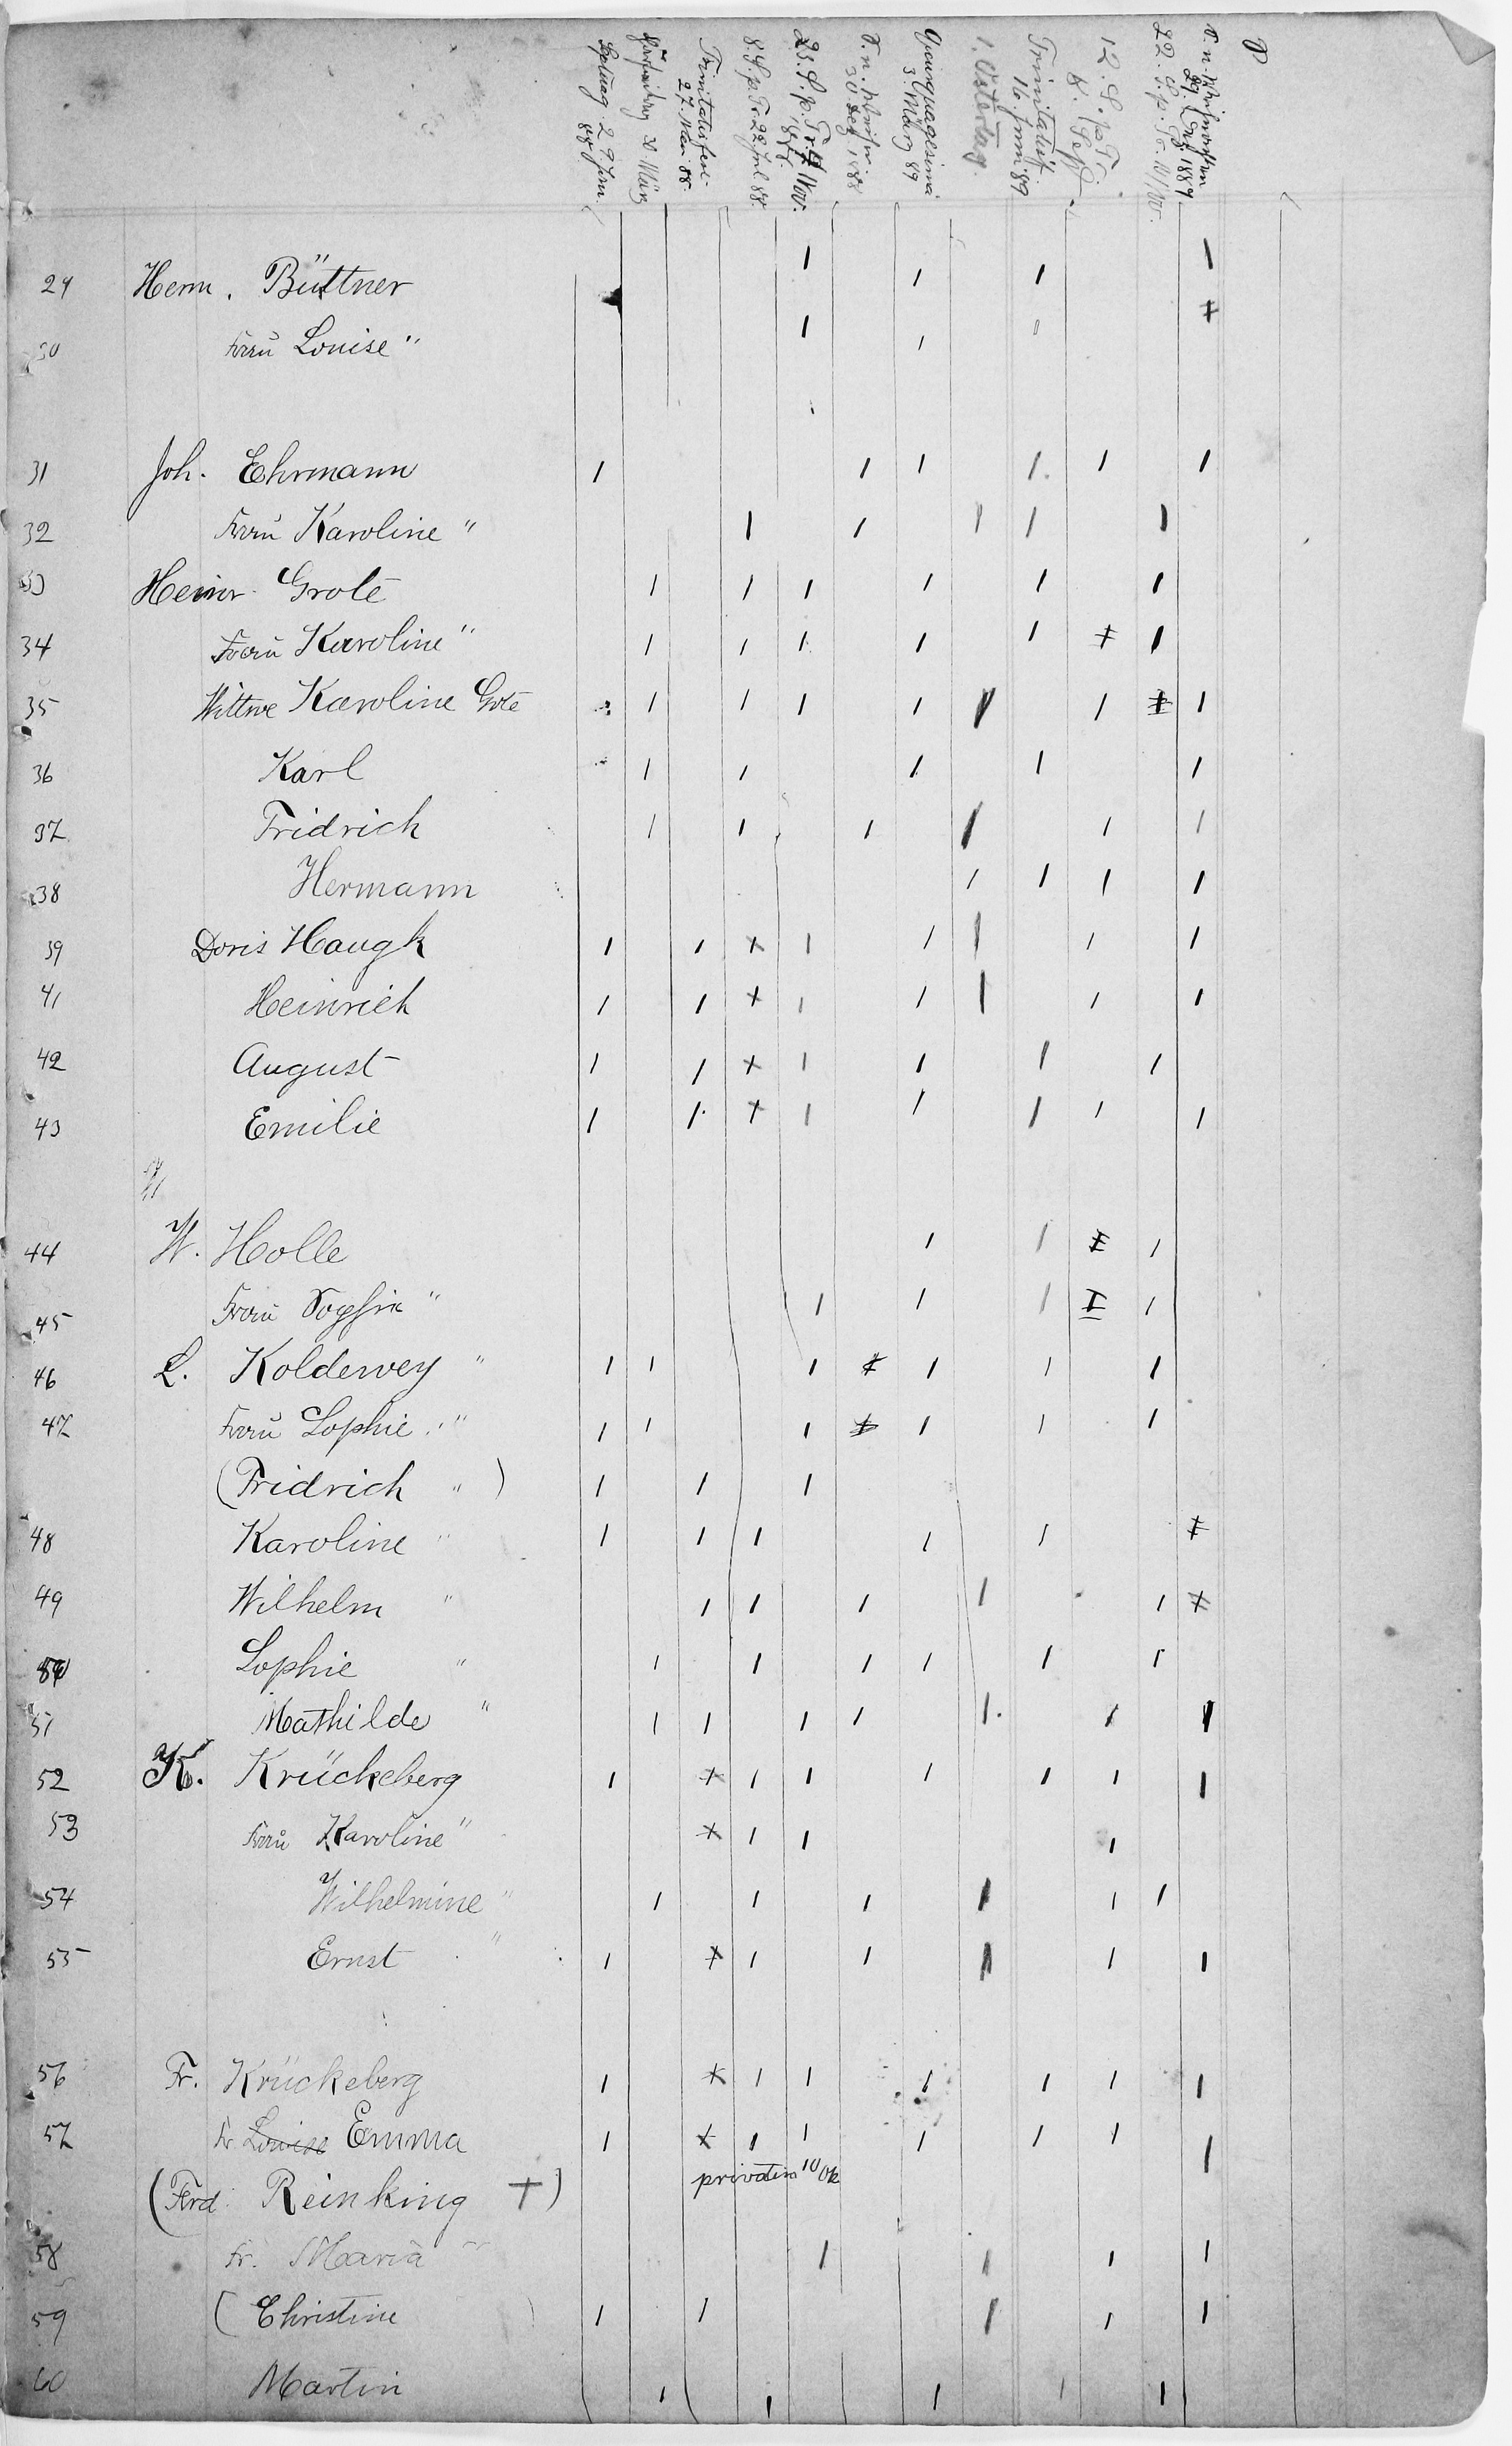 Septuag. 29 Jan. 88
30. März
Trinitatisfest 27. Mai 88.
8. S. p. Tr. 22 Jul 88.
23. S. p. Tr. 4 Nov. 1888.
S. n. Weihn. 30 Dez 1888
Quinquagesimä 3. März 89
1. Ostertag.
Trinitatisf. 16. Juni 89
12. S. p. T. 8. Sept.
22. S. p. Tr. 10/Nov.
S. n. Weihnachten 29. Dez 1889
29 Herm. Büttner
30 Frau Louise "
31 Joh. Ehrmann
32 Frau Karoline "
33 Heinr. Grote
34 Frau Karoline "
35 Wittwe Karoline Grote
36 Karl
37 Fridrich
38 Hermann
39 Doris Haugk
41 Heinrich
42 August
43 Emilie
44 W. Holle
45 Frau Sophie "
46 L. Koldewey "
47 Frau Sophie "
(Fridrich " )
48 Karoline "
49 Wilhelm "
50 Sophie "
51 Mathilde "
52 K. Krückeberg
53 Frau Karoline "
54 Wilhelmine "
55 Ernst "
56 Fr. Krückeberg
57 Fr Louise Emma
(Ferd. Reinking +) privatim 10/Ok
58 Fr. Maria "
59 ( Christine )
60 Martin